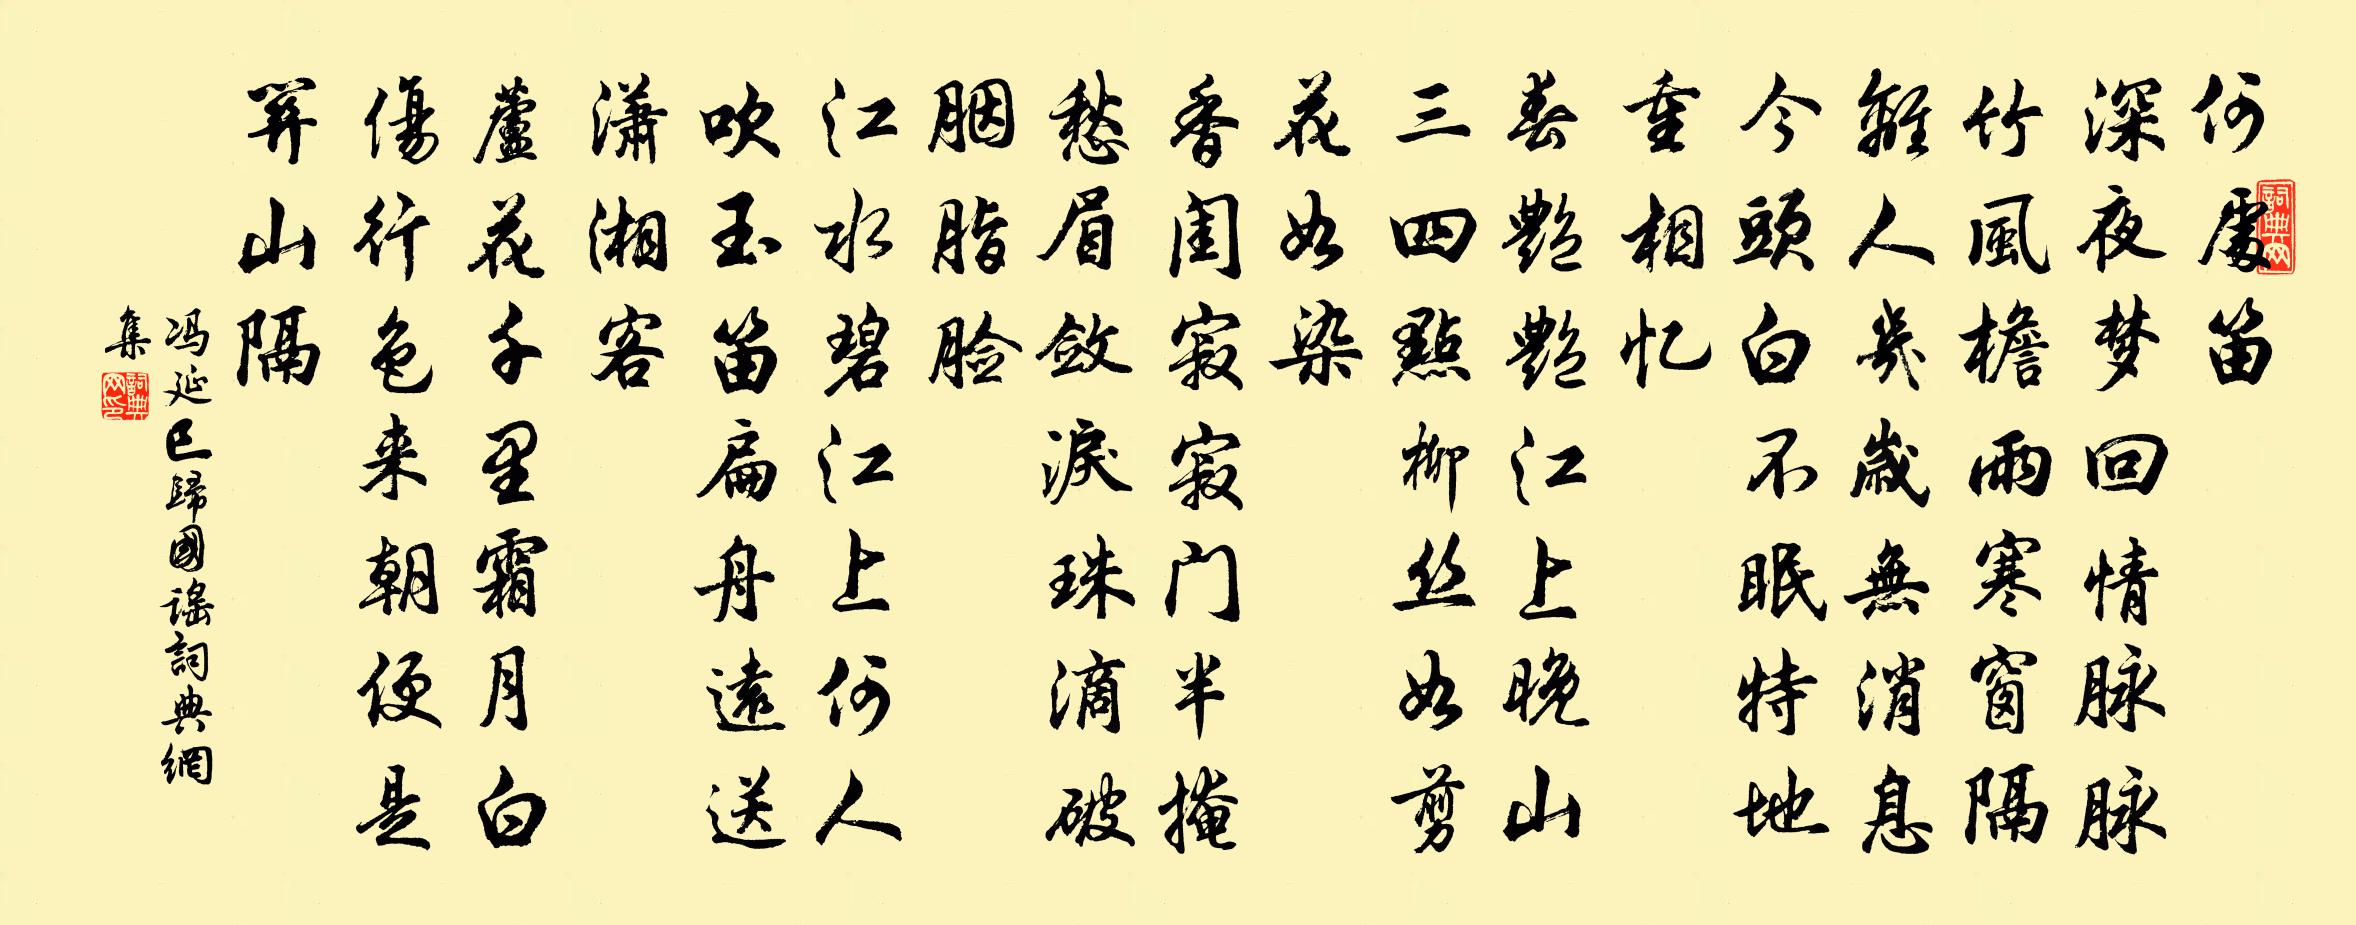 何處笛
深夜梦回情脉脉
竹風檐雨寒窗隔
離人幾歲無消息
今頭白不眠特地
重相忆
春艷艷江上晚山
三四點柳丝如剪
花如染
香闺寂寂门半掩
愁眉斂淚珠滴破
胭脂脸
江水碧江上何人
吹玉笛扁舟遠送
瀟湘客
蘆花千里霜月白
傷行色来朝便是
關山隔
冯延巳歸國謠詞典網
集
詞典网
詞典网印